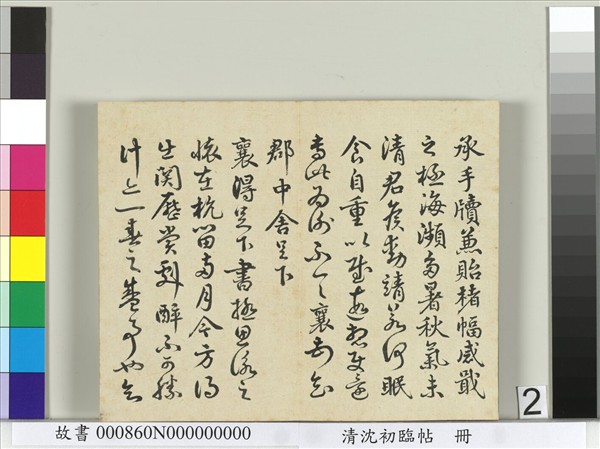 承手牘兼貽楮幅感戢
之極海瀕多暑秋氣未
清君侯動靖若何眠
食自重以慰遠想使還
專此為謝不一一襄知
郡中舍足下
襄得足下書極思詠之
懷在杭留兩月今方得
出關歷賞劇醉不可勝
計亦一春之盛事也知
2
故書 000860N000000000 清沈初臨帖 冊